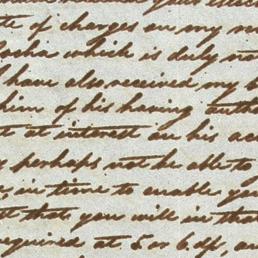 of charges on my
which is duly
have also received my
him of his having
at interest on his
perhaps not be able to
in time to enable
that you will in that
required at 5 or 6 dys, an